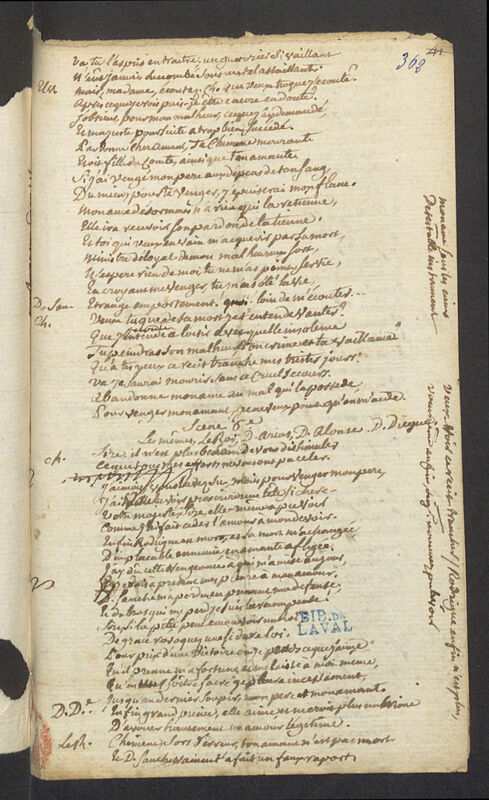 362
Va tu l'as pris en traître, un guerrier si vaillant
N'eût jamais succombé sous un tel assaillant.
Elv. Mais, madame, écoutez. Ch. Que veux-tu que j'écoute?
Après ce que je vois puis-je être encore en doute?
J'obtiens, pour mon malheur, ce que j'ai demandé,
Et ma juste poursuite a trop bien succédé.
Pardonne cher amant, à ta Chimene mourante
Je suis fille du Comte, ainsi que ton amante
Si j'ai vengé mon pere aux dépens de ton sang,
Du mien, pour te venger, j'épuiserai mon flanc.
Mon ame désormais n'a rien qui la retienne,
Elle ira recevoir son pardon de la tienne.
Et toi qui veux en vain m'acquerir par sa mort,
Ministre déloyal de mon malheureux sort,
N'espere rien de moi, tu ne m'as point servie,
En croyant me venger, tu m'as ôté la vie,
D. San. Etrange emportement. quoi, loin de m'écouter...
Ch. Veux tu que de sa mort je t'entende vanter?
Que j'entende à loisir avec quelle insolence
Tu peindras son malheur, mon crime et ta vaillance?
Qu'à tes yeux ce récit tranche mes tristes jours.
Va je saurai mourir sans ce cruel secours.
Abandonne mon ame au mal qui la possede
Pour venger mon amant, je ne veux point qu'on m'aide.
Scène 6e
Les mêmes, Le Roi, D. Arias, D. Alonse, D. Diegue
Ch. Sire, il n'est plus besoin de vous dissimuler
Ce que tous mes efforts ne vous ont pu celer.
J'aimois, vous l'avez su, mais pour venger mon pere
J'ai voulu proscrire une tête si chere
Votre majesté, Sire, elle-même a pu voir
Comme j'ai fait céder l'amour à mon devoir.
Enfin Rodrigue est mort, et sa mort m'a changée
D'implacable ennemie en amante affligée.
J'ai dû cette vengeance à qui m'a mise au jour,
Et je dois à présent mes pleurs à mon amour.
D. Sanche m'a perdue en prenant ma defense,
Et du bras qui me perd je suis la recompense!
Sire, si la pitié peut emouvoir un Roi
De grace revoquez une si dure loi.
Pour prix d'une victoire où je perds ce que j'aime
Qu'il prenne ma fortune, et me laisse à moi même,
Qu'en un cloître sacré je pleure incessament,
Jusqu'au dernier soupir, mon pere et mon amant.
D. De. Enfin grand prince, elle aime, et ne croit plus un crime
D'avouer hautement un amour légitime.
Le Ro. Chimene, sors d'erreur, ton amant n'est pas mort
Et D. Sanche vaincu t'a fait un faux rapport
BIB. DE
LAVAL